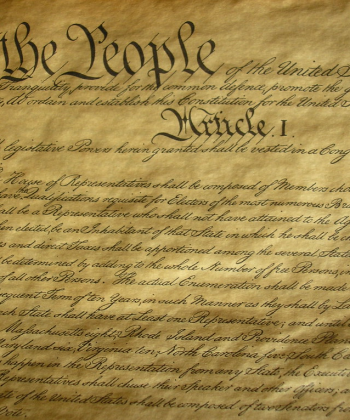 the People of the United
Tranquility, provide for the common defence, promote the
do ordain and establish this Constitution for the United
Article. I.
legislative Powers herein granted shall be vested in a Cong
House of Representatives shall be composed of Members cho
have Qualifications requisite for Electors of the most numerous Bra
shall be a Representative who shall not have attained to the Ag
when elected, be an Inhabitant of that State in which he shall be ch
and direct Taxes shall be apportioned among the several State
be determined by adding to the whole Number of free Persons, in
of all other Persons. The actual Enumeration shall be made
subsequent Term of ten Years, in such Manner as they shall by La
each State shall have at Least one Representative; and until
Massachusetts eight, Rhode Island and Providence Planta
Maryland six, Virginia ten, North Carolina five, South Ca
happen in the Representation from any State, the Executi
Representatives shall chuse their Speaker and other Officers; a
Senate of the United States shall be composed of two Senators f
Vote.